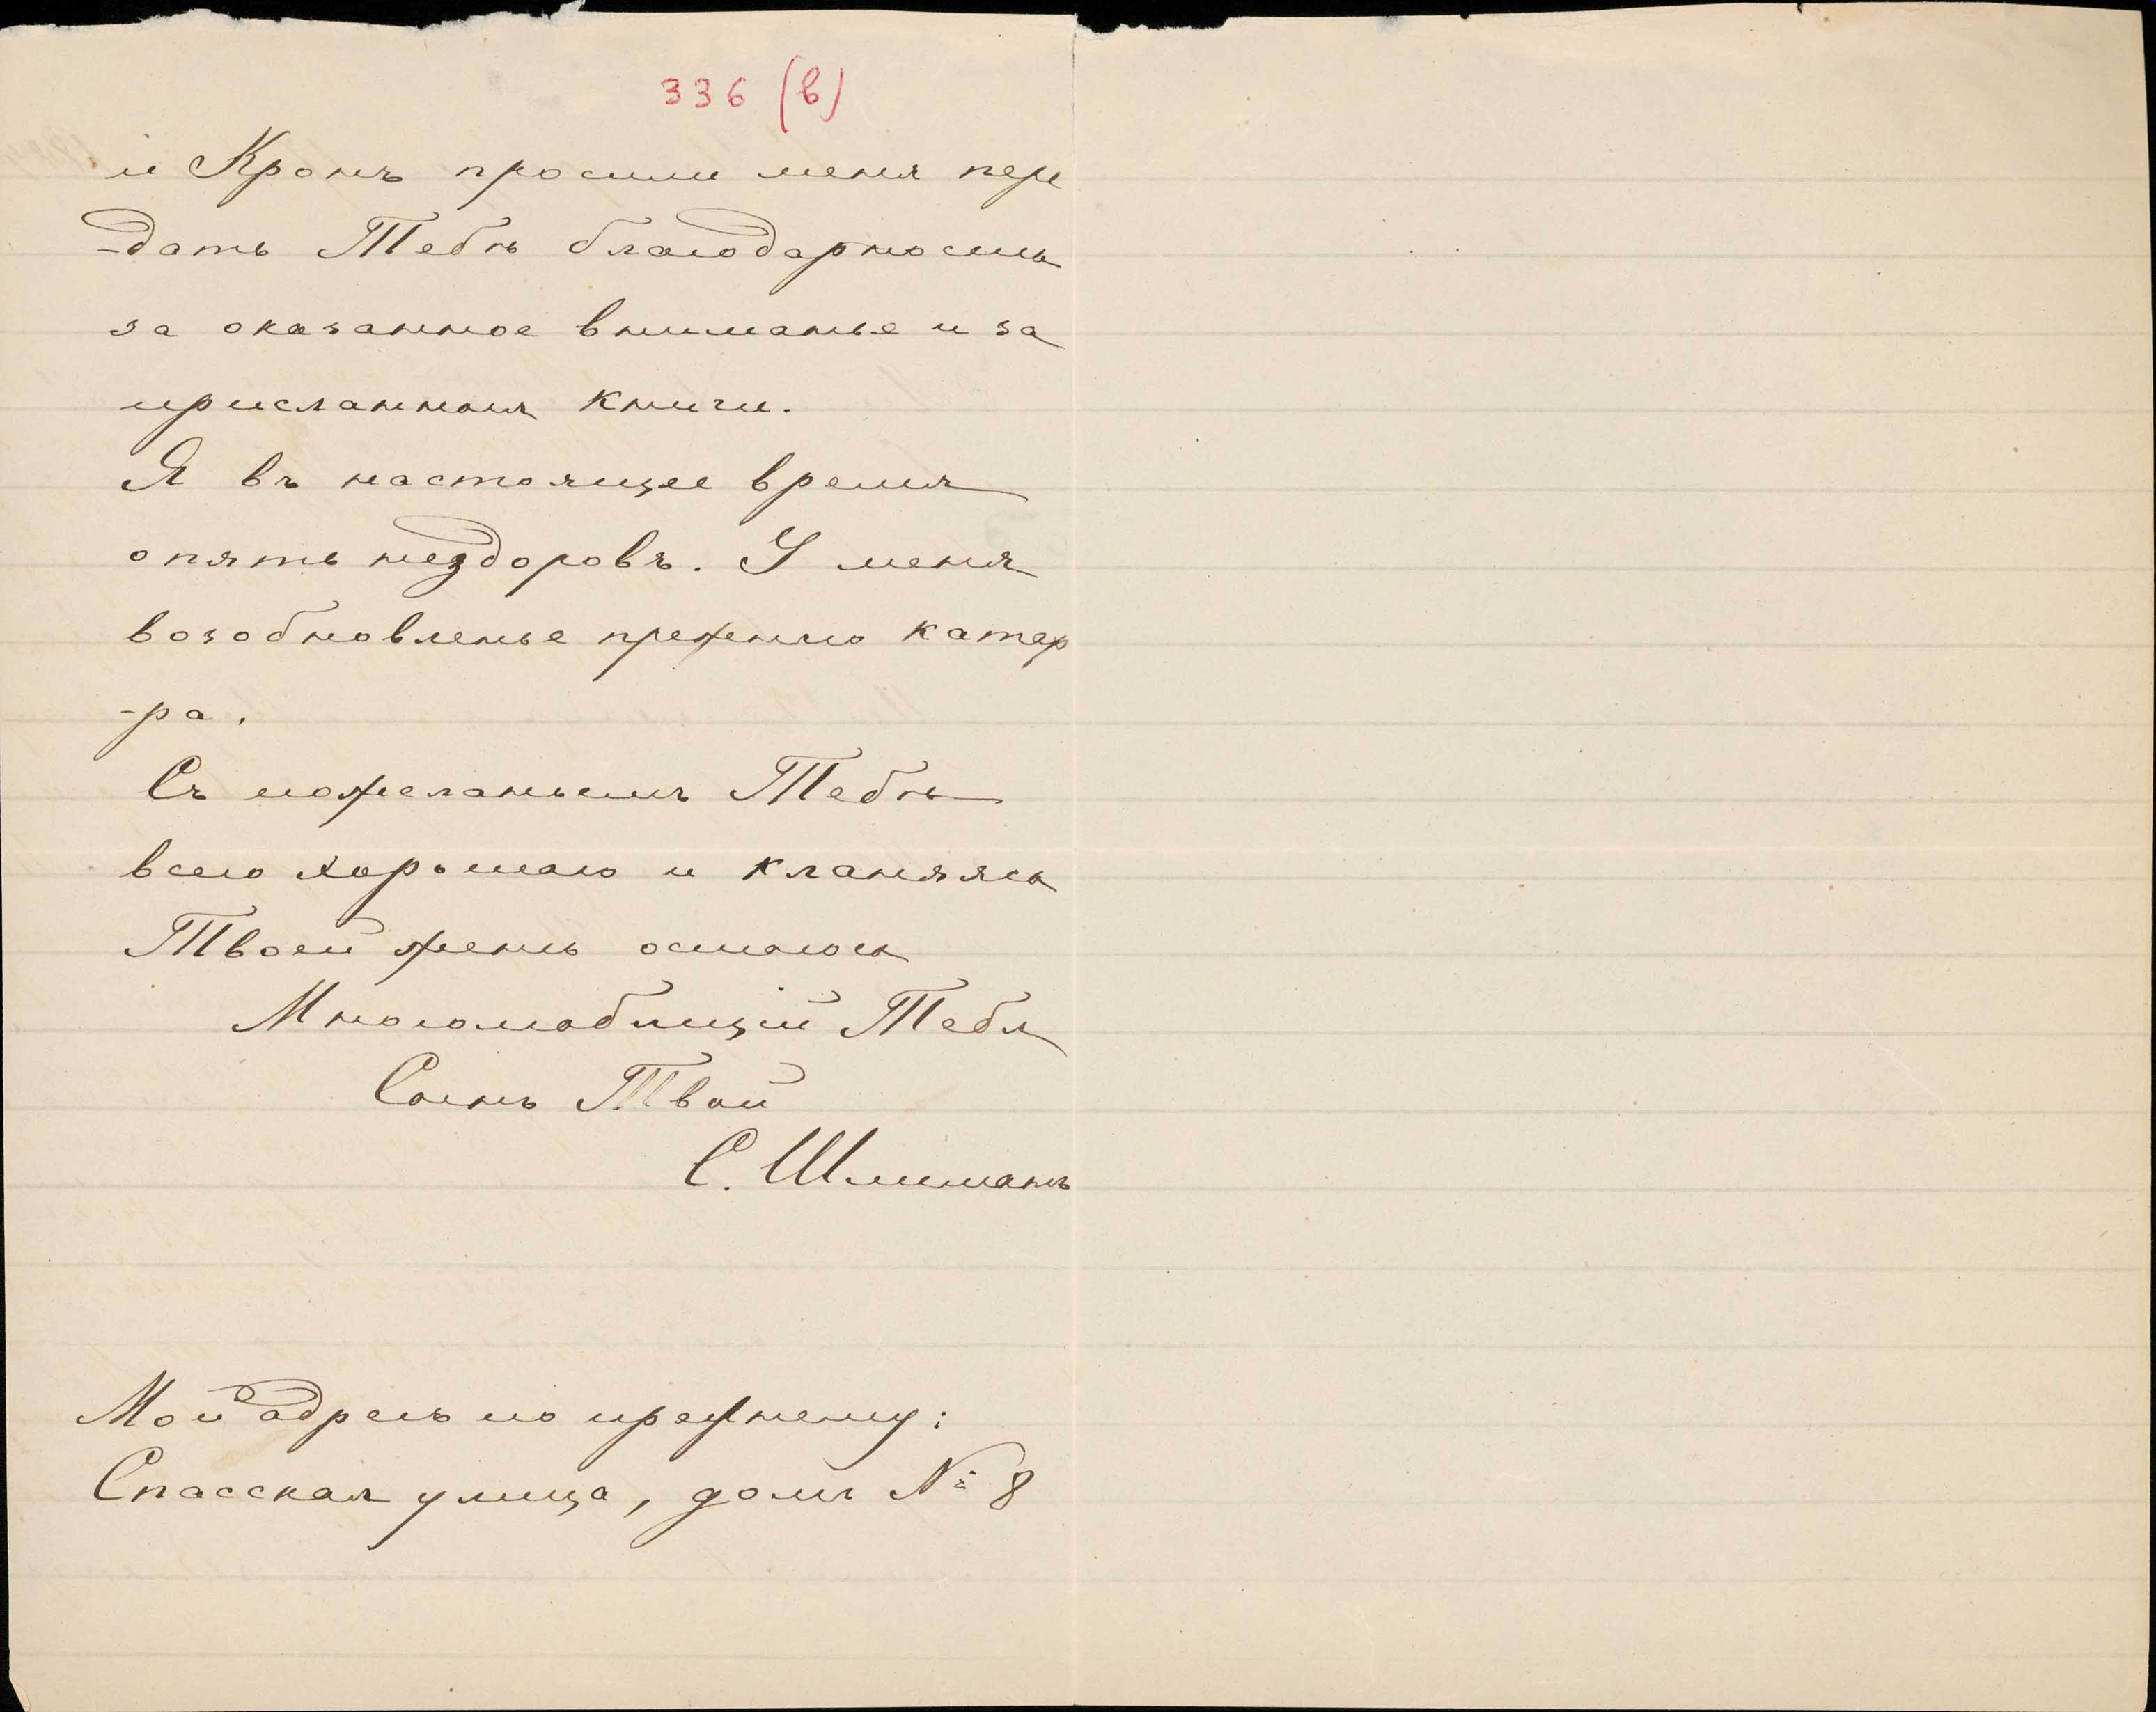 336 (в)
и Кронъ просили меня пере
-дать Тебѣ благодарность
за оказанное вниманье и за
присланныя книги.
Я въ настоящее время
опять нездоровъ. У меня
возобновленье прежняго катар
-ра.
Съ пожеланьемъ Тебѣ
всего хорошаго и кланяясь
Твоей женѣ остаюсь
Многолюбящій Тебя
Сынъ Твой
С. Шлиманъ
Мой адресъ по прежнему:
Спасская улица, домъ № 8